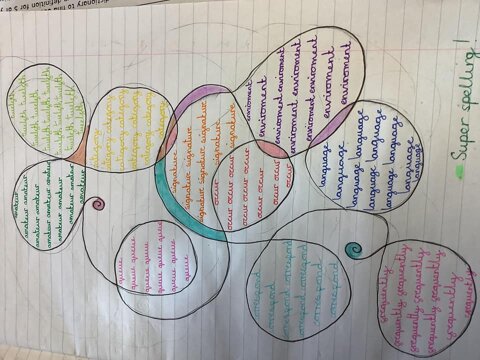 dictionary to find
definition for 5 of
twelfth twelfth
twelfth twelfth
twelfth twelfth
twelfth twelfth
twelfth
amateur
amateur amateur
amateur amateur
amateur amateur
amateur amateur
amateur
category
category category
category category
category category
category
queue
queue queue
queue queue queue
queue queue queue
queue queue
signature
signature signature
signature signature
signature
occur occur occur
occur occur occur
occur occur
occur
enviroment
enviroment enviroment
enviroment enviroment
enviroment enviroment
enviroment
correspond
correspond
correspond correspond
correspond
correspond
language
language language
language language
language language
language
frequently
frequently frequently
frequently frequently
frequently
Super spelling!